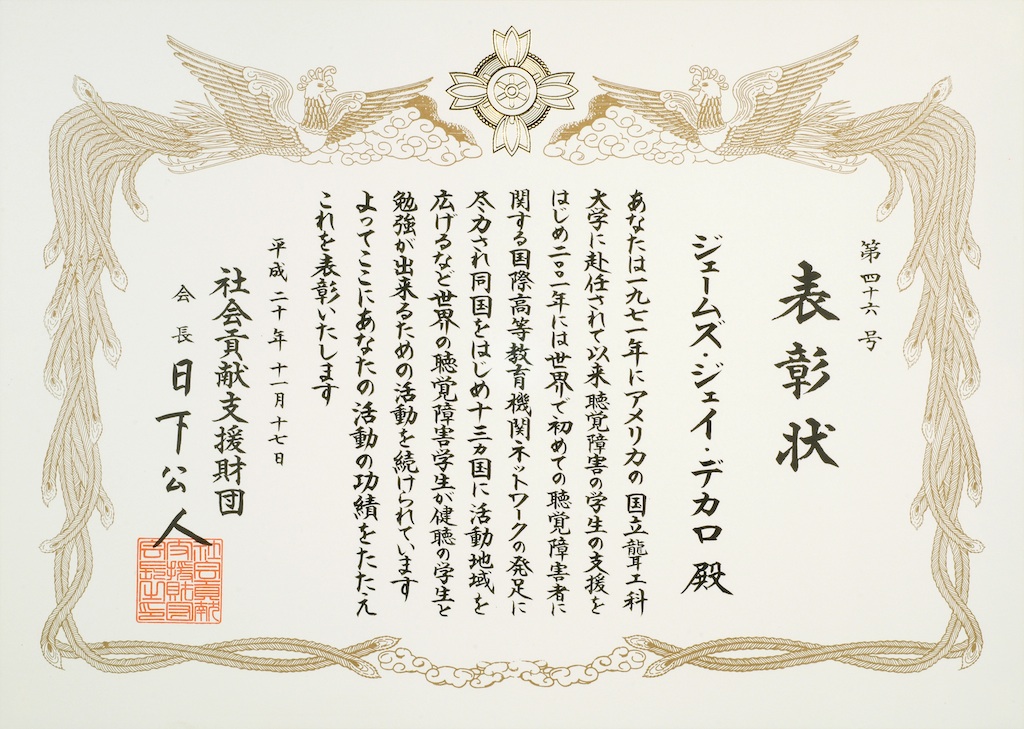 第四十六号
表彰状
ジェームズ・ジェイ・デカロ 殿
あなたは一九七一年にアメリカの国立聾工科
大学に赴任されて以来聴覚障害の学生の支援を
はじめ二〇〇一年には世界で初めての聴覚障害者に
関する国際高等教育機関ネットワークの発足に
尽力され同国をはじめ十三ヵ国に活動地域を
広げるなど世界の聴覚障害学生が健聴の学生と
勉強が出来るための活動を続けられています
よってここにあなたの活動の功績をたたえ
これを表彰いたします
平成二十年十一月十七日
社会貢献支援財団
会長 日下公人